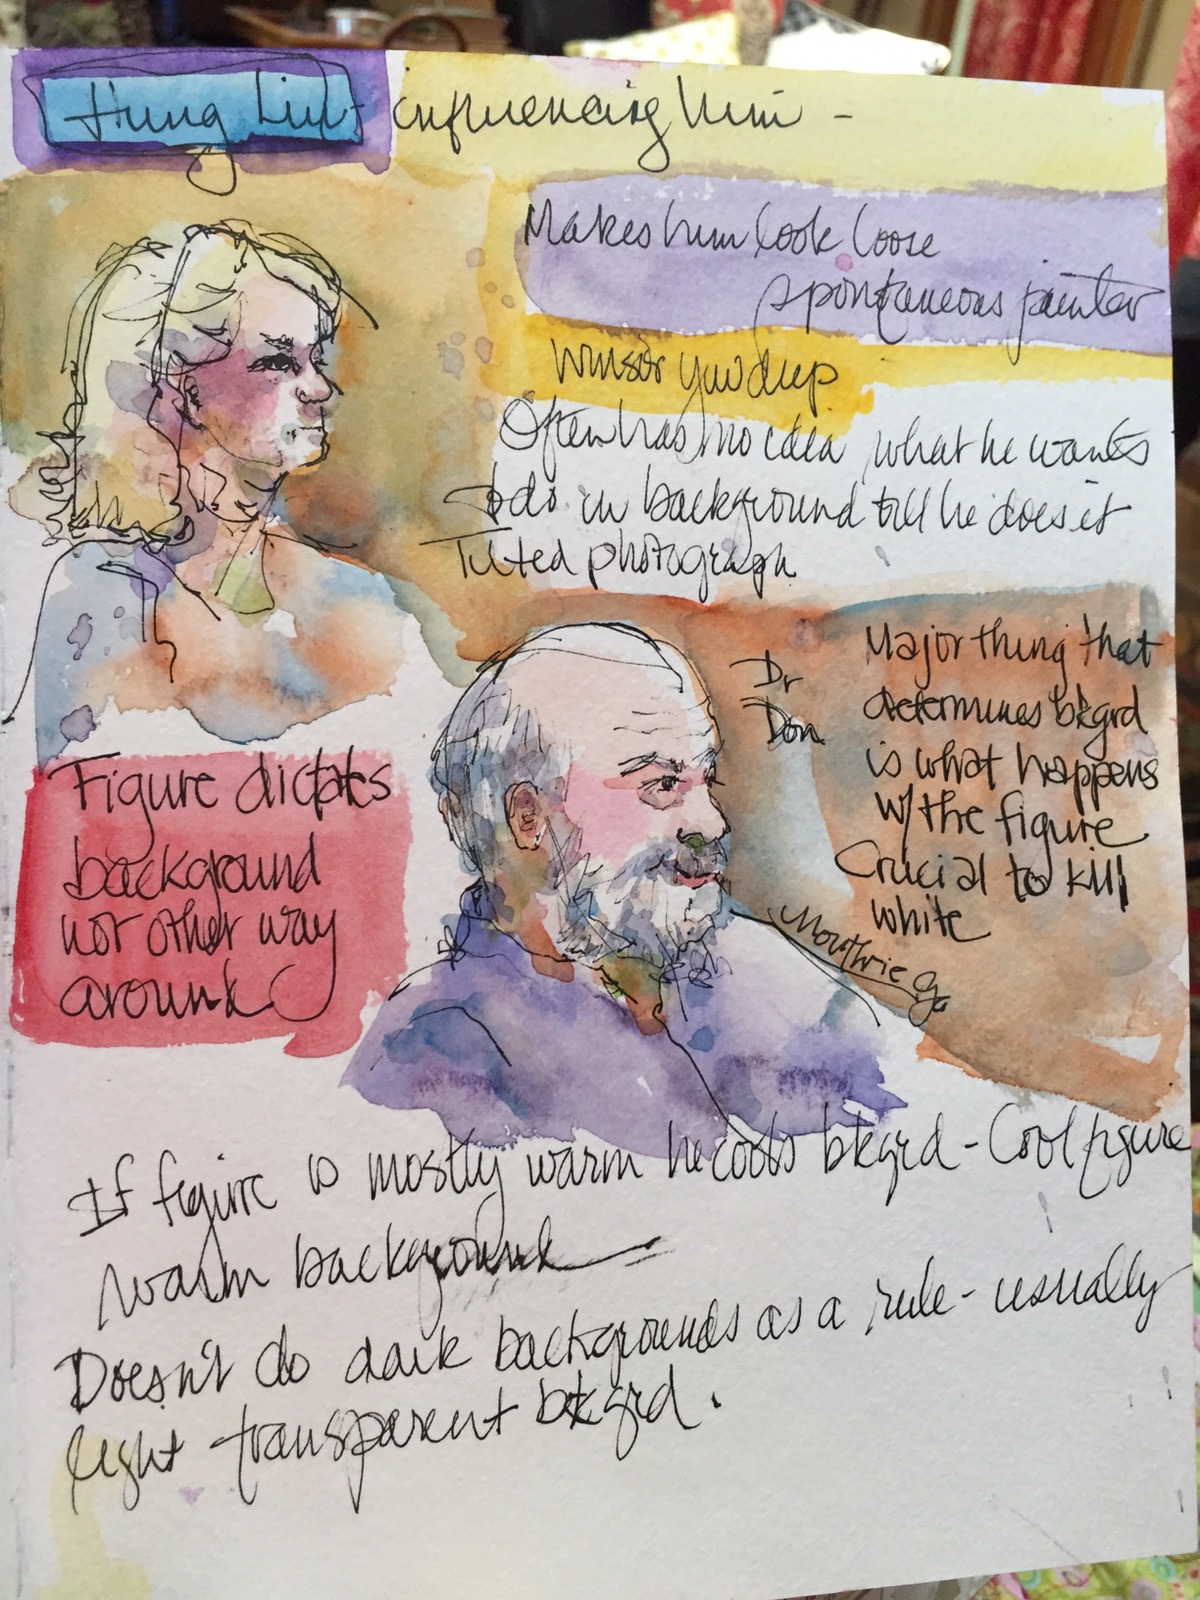 Hung Liu - influencing him -
Makes him look loose
spontaneous painter
Winsor yllw deep
Often has no idea what he wants
to do in background till he does it
Tilted photograph
Dr
Don
Major thing that
determines bkgrd
is what happens
w/ the figure
Crucial to kill
white
Moultrie Ga
Figure dictates
background
not other way
around
If figure is mostly warm he cools bkgrd - Cool figure
warm background
Doesn't do dark backgrounds as a rule - usually
light transparent bkgrd.